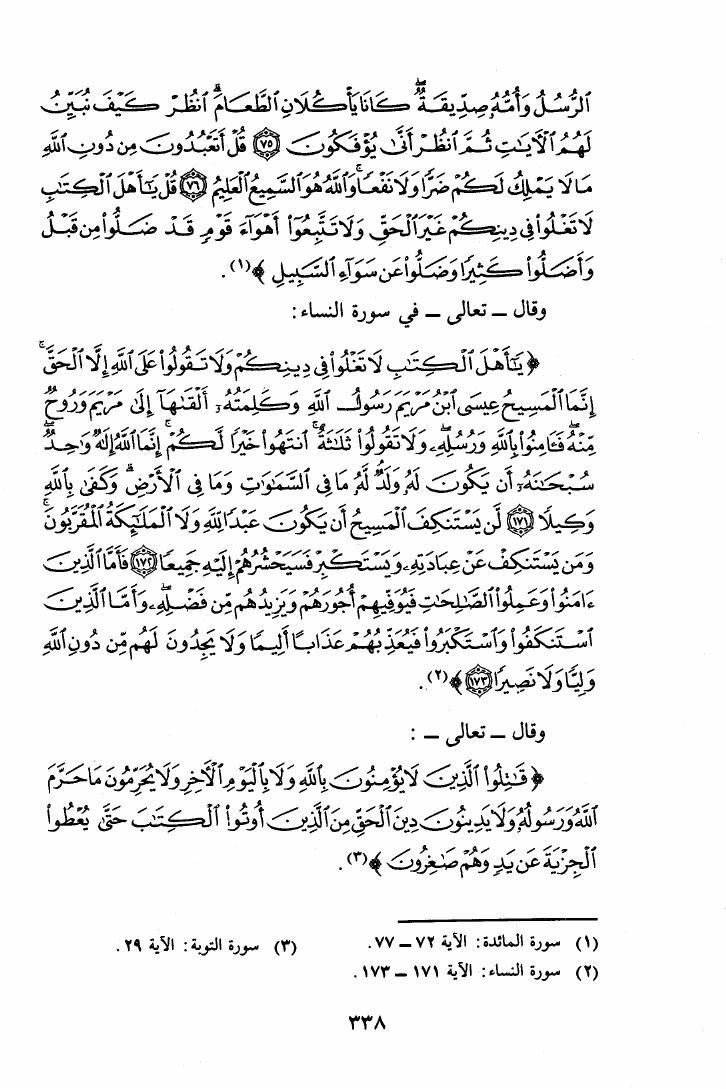 ٱلرُّسُلُ وَأُمُّهُۥ صِدِّيقَةٌ ۖ كَانَا يَأْكُلَانِ ٱلطَّعَامَ ۗ ٱنظُرْ كَيْفَ نُبَيِّنُ
لَهُمُ ٱلْءَايَٰتِ ثُمَّ ٱنظُرْ أَنَّىٰ يُؤْفَكُونَ ﴿٧٥﴾ قُلْ أَتَعْبُدُونَ مِن دُونِ ٱللَّهِ
مَا لَا يَمْلِكُ لَكُمْ ضَرًّا وَلَا نَفْعًا ۚ وَٱللَّهُ هُوَ ٱلسَّمِيعُ ٱلْعَلِيمُ ﴿٧٦﴾ قُلْ يَٰٓأَهْلَ ٱلْكِتَٰبِ
لَا تَغْلُوا۟ فِى دِينِكُمْ غَيْرَ ٱلْحَقِّ وَلَا تَتَّبِعُوٓا۟ أَهْوَآءَ قَوْمٍ قَدْ ضَلُّوا۟ مِن قَبْلُ
وَأَضَلُّوا۟ كَثِيرًا وَضَلُّوا۟ عَن سَوَآءِ ٱلسَّبِيلِ ﴾(١).
وقال ــ تعالى ــ في سورة النساء:
﴿ يَٰٓأَهْلَ ٱلْكِتَٰبِ لَا تَغْلُوا۟ فِى دِينِكُمْ وَلَا تَقُولُوا۟ عَلَى ٱللَّهِ إِلَّا ٱلْحَقَّ ۚ
إِنَّمَا ٱلْمَسِيحُ عِيسَى ٱبْنُ مَرْيَمَ رَسُولُ ٱللَّهِ وَكَلِمَتُهُۥٓ أَلْقَىٰهَآ إِلَىٰ مَرْيَمَ وَرُوحٌ
مِّنْهُ ۖ فَـَٔامِنُوا۟ بِٱللَّهِ وَرُسُلِهِۦ ۖ وَلَا تَقُولُوا۟ ثَلَٰثَةٌ ۚ ٱنتَهُوا۟ خَيْرًا لَّكُمْ ۚ إِنَّمَا ٱللَّهُ إِلَٰهٌ وَٰحِدٌ ۖ
سُبْحَٰنَهُۥٓ أَن يَكُونَ لَهُۥ وَلَدٌ ۘ لَّهُۥ مَا فِى ٱلسَّمَٰوَٰتِ وَمَا فِى ٱلْأَرْضِ ۗ وَكَفَىٰ بِٱللَّهِ
وَكِيلًا ﴿١٧١﴾ لَّن يَسْتَنكِفَ ٱلْمَسِيحُ أَن يَكُونَ عَبْدًا لِّلَّهِ وَلَا ٱلْمَلَٰٓئِكَةُ ٱلْمُقَرَّبُونَ ۚ
وَمَن يَسْتَنكِفْ عَنْ عِبَادَتِهِۦ وَيَسْتَكْبِرْ فَسَيَحْشُرُهُمْ إِلَيْهِ جَمِيعًا ﴿١٧٢﴾ فَأَمَّا ٱلَّذِينَ
ءَامَنُوا۟ وَعَمِلُوا۟ ٱلصَّٰلِحَٰتِ فَيُوَفِّيهِمْ أُجُورَهُمْ وَيَزِيدُهُم مِّن فَضْلِهِۦ ۖ وَأَمَّا ٱلَّذِينَ
ٱسْتَنكَفُوا۟ وَٱسْتَكْبَرُوا۟ فَيُعَذِّبُهُمْ عَذَابًا أَلِيمًا وَلَا يَجِدُونَ لَهُم مِّن دُونِ ٱللَّهِ
وَلِيًّا وَلَا نَصِيرًا ﴿١٧٣﴾ ﴾(٢).
وقال ــ تعالى ــ :
﴿ قَٰتِلُوا۟ ٱلَّذِينَ لَا يُؤْمِنُونَ بِٱللَّهِ وَلَا بِٱلْيَوْمِ ٱلْءَاخِرِ وَلَا يُحَرِّمُونَ مَا حَرَّمَ
ٱللَّهُ وَرَسُولُهُۥ وَلَا يَدِينُونَ دِينَ ٱلْحَقِّ مِنَ ٱلَّذِينَ أُوتُوا۟ ٱلْكِتَٰبَ حَتَّىٰ يُعْطُوا۟
ٱلْجِزْيَةَ عَن يَدٍ وَهُمْ صَٰغِرُونَ ﴾(٣).
(١) سورة المائدة: الآية ٧٢ ــ ٧٧.
(٢) سورة النساء: الآية ١٧١ ــ ١٧٣.
(٣) سورة التوبة: الآية ٢٩.
٣٣٨